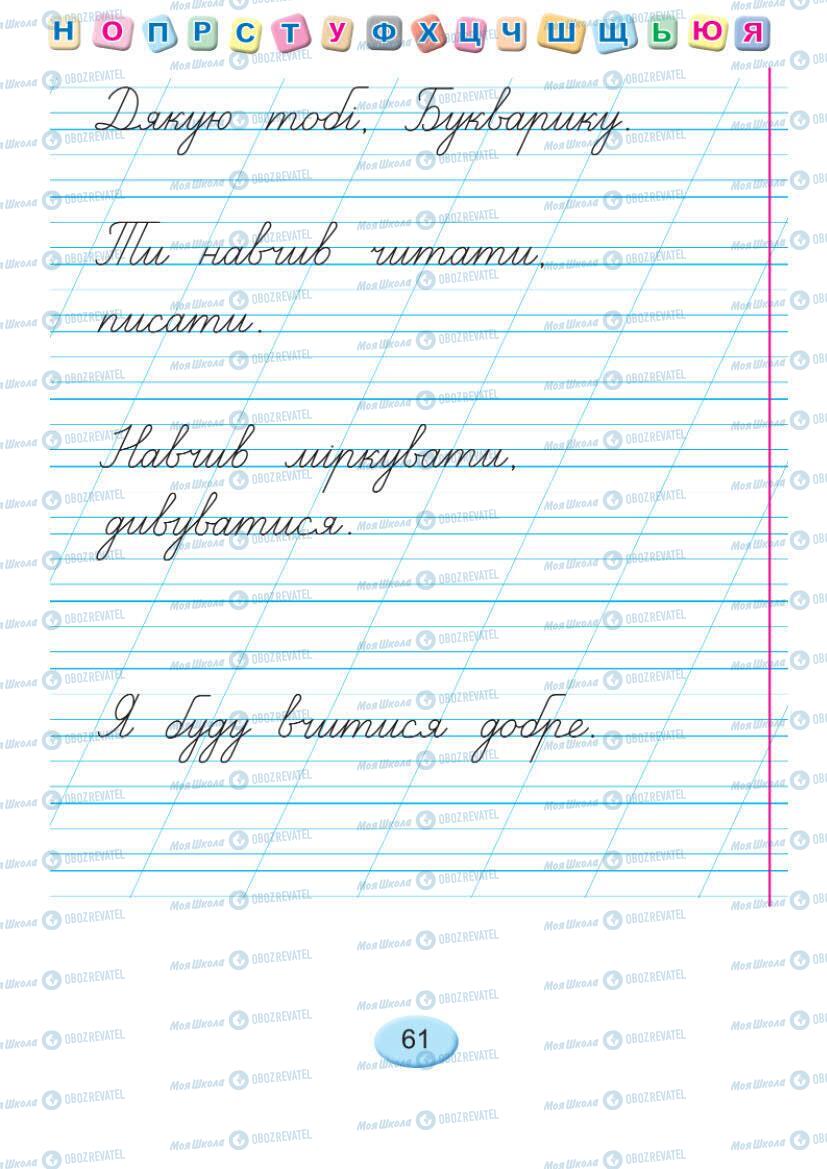 Н О П Р С Т У Ф Х Ц Ч Ш Щ Ь Ю Я
Дякую тобі, Букварику.
Ти навчив читати,
писати.
Навчив міркувати,
дивуватися.
Я буду вчитися добре.
61